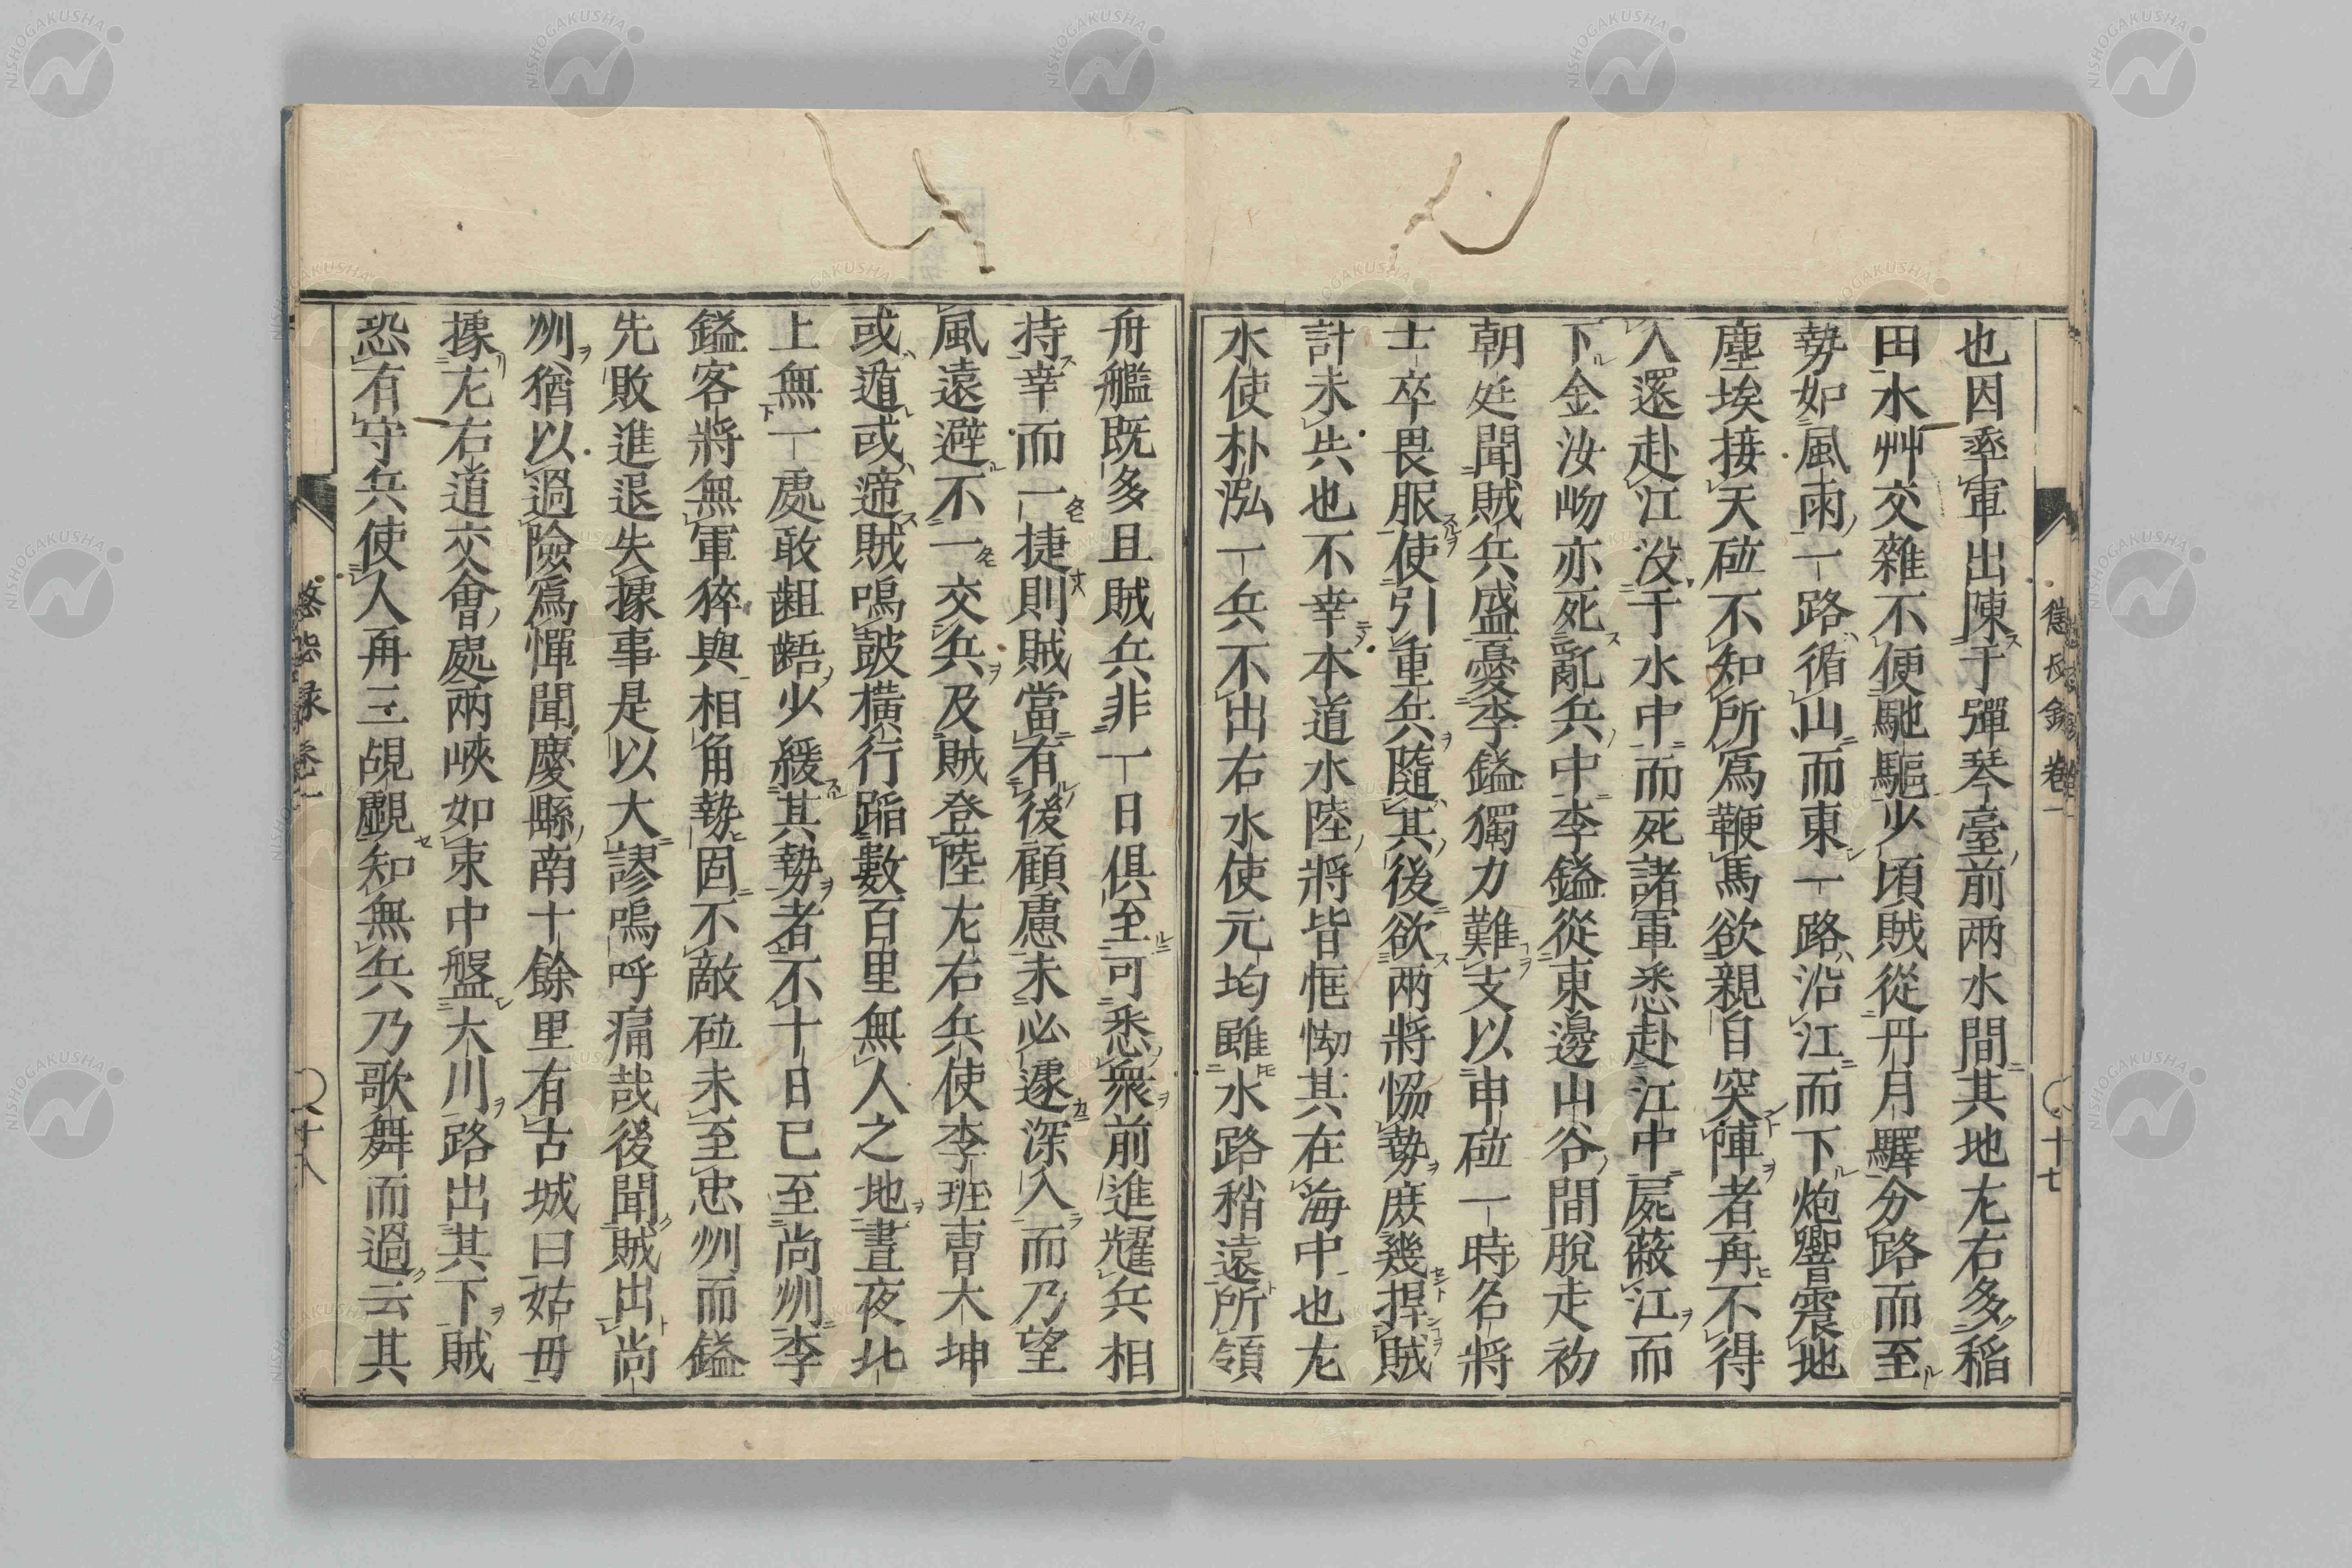 也因率軍出陳于彈琴臺前兩水間其地左右多稻
田水艸交雜不便馳驅少頃賊從丹月驛分路而至
勢如風雨一路循山而東一路沿江而下炮響震地
塵埃接天砬不知所爲鞭馬欲親自突陣者再不得
入還赴江沒于水中而死諸軍悉赴江中屍蔽江而
下金汝岉亦死亂兵中李鎰從東邊山谷間脫走初
朝廷聞賊兵盛憂李鎰獨力難支以申砬一時名將
士卒畏服使引重兵隨其後欲兩將恊勢庶幾捍賊
計未失也不幸本道水陸將皆恇怯其在海中也左
水使朴泓一兵不出右水使元均雖水路稍遠所領
舟艦既多且賊兵非一日俱至可悉衆前進耀兵相
持幸而一捷則賊當有後顧慮未必遽深入而乃望
風遠避不一交兵及賊登陸左右兵使李珏曺大坤
或遁或遞賊鳴鼓橫行蹈數百里無人之地晝夜北
上無一處敢齟齬少緩其勢者不十日已至尚州李
鎰客將無軍猝與相角勢固不敵砬未至忠州而鎰
先敗進退失據事是以大謬嗚呼痛哉後聞賊出尚
州猶以過險爲憚聞慶縣南十餘里有古城曰姑毋
據左右道交會處兩峽如束中盤大川路出其下賊
恐有守兵使人再三覘覷知無兵乃歌舞而過云其
懲毖録 卷一
〇十七
〇十八
NISHOGAKUSHA